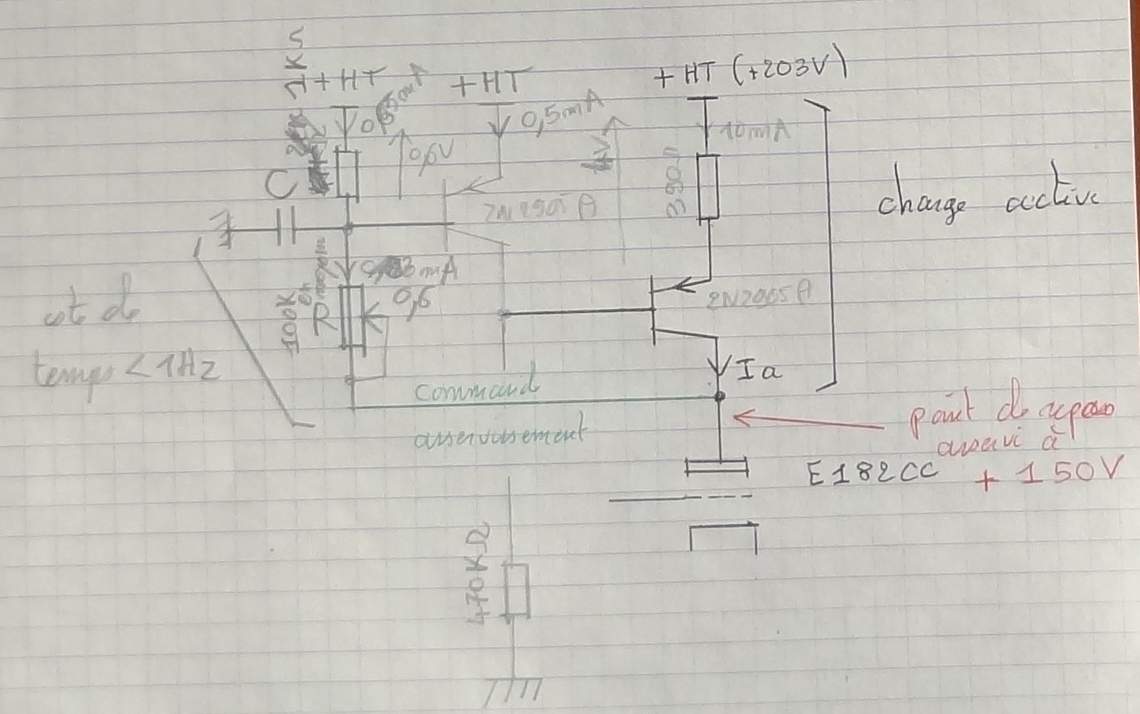 1KΩ
+HT
+HT
+HT (+203V)
0,5mA
10mA
0,6V
4V
390Ω
C
2N2905A
charge active
mA
0,6
100K
R
2N2905A
cte de
temps < 1Hz
Ia
command
asservissement
point de repos
asservi à
+ 150V
E182CC
470KΩ